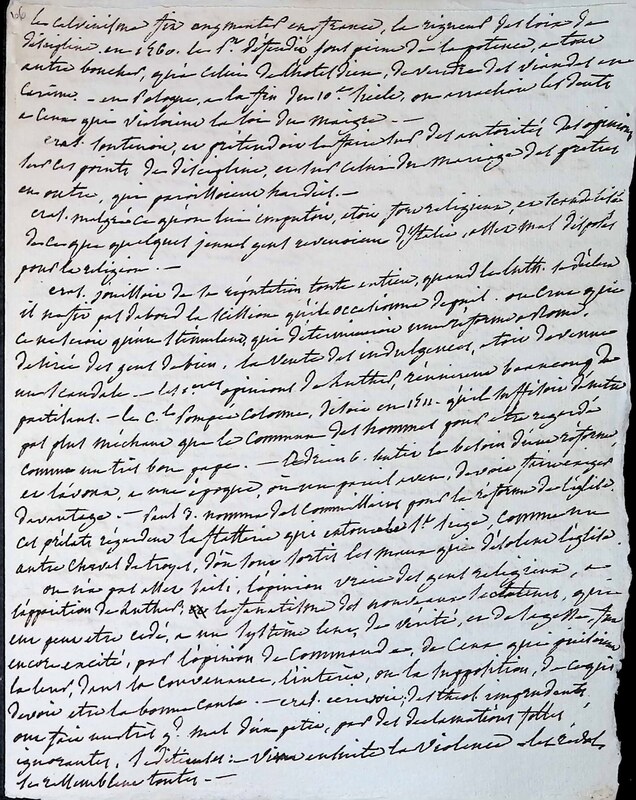 le calvinisme fit augmenter en france, la rigueur des loix de
discipline, en 1560. le P. défendu sous peine de la potence, a tout
autre boucher, que celui de l'hotel dieu, de vendre des viandes en
Carême. - en Pologne, a la fin du 10e siècle, on arrachoit les dents
a Ceux qui violoient la loi du maigre. -
Eras. soutenoit, et prétendoit le faire sur des autorités des opinions
sur ces points de discipline, et sur celui du mariage des prêtres
en outre, qui paroissoient hardies. -
Eras. malgré ce qu'on lui imputoit, étoit fort religieux, et scandalisé
de ce que quelques jeunes gens revenoient d'Italie, assez mal disposés
pour la religion. -
Eras. jouissoit de sa réputation toute entière, quand le luth. se déclara
il ne fit pas d'abord la scission qu'il occasionna depuis. on crut que
ce ne seroit qu'un stimulant, qui détermineroit une réforme a Rome,
désirée des gens de bien. la vente des indulgences, étoit devenue
un scandale. - les 1eres opinions de Luther, réunirent beaucoup de
partisans. - le Cal Pompée Colonne, disoit en 1511. qu'il suffisoit de n'être
pas plus méchant que le commun des hommes pour être regardé
comme un très bon pape. - Adrien 6. sentit le besoin d'une réforme
et l'avoua, a une époque, où un pareil aveu, devoit faire exiger
davantage. - Paul 3. nomma des commissaires pour la réforme de l'église.
ces prélats regardent la flatterie qui entoure le St Siège, comme un
autre cheval de troyes, d'où sont sortis les maux qui désolent l'église.
on n'a pas assez saisi, l'opinion vraie des gens religieux, a
l'apparition de Luther; le fanatisme des nouveaux sectateurs, qui
eut peut être cédé, a un système lent, de vérité, et de sagesse, fut
encore excité, par l'opinion de commande, de Ceux qui puisoient
la leur, dans la convenance, l'intérêt, ou la supposition, de ce qui
devoit être la bonne cause. - Eras. écrivoit; des théol. imprudents
ont fait un très gd mal d'un petit, par des déclamations folles,
ignorantes, ridicules: - vient ensuite la violence
se ressemblent toutes. -